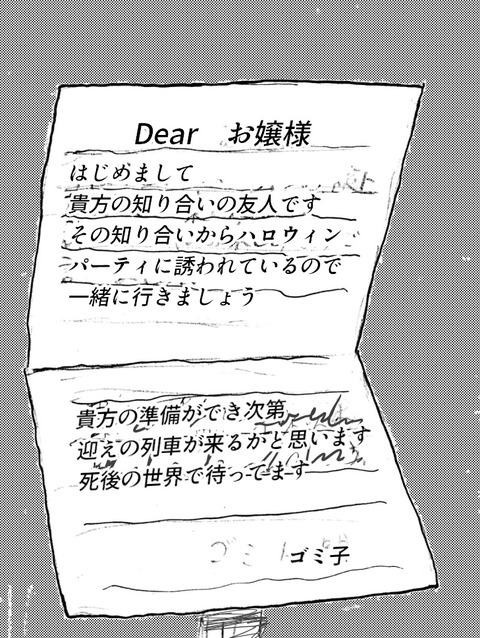 Dear お嬢様
はじめまして
貴方の知り合いの友人です
その知り合いからハロウィン
パーティに誘われているので
一緒に行きましょう
貴方の準備ができ次第
迎えの列車が来るかと思います
死後の世界で待ってます
ゴミ子